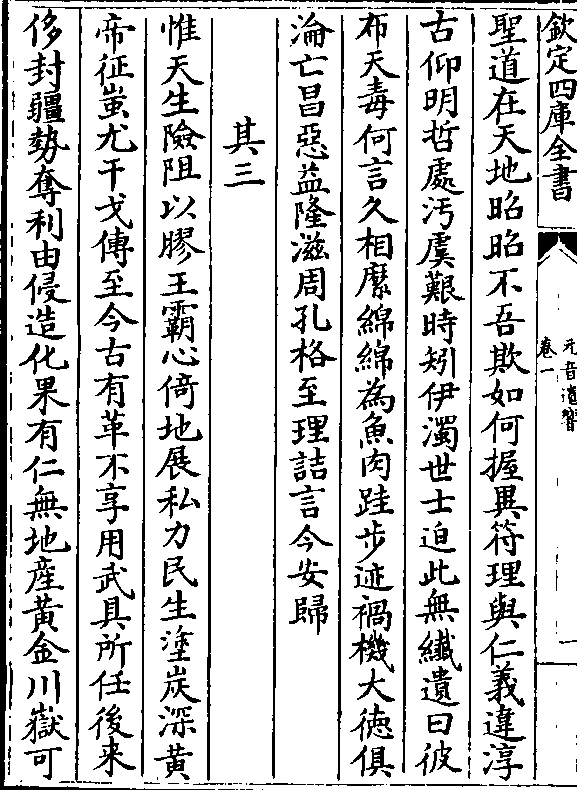 欽定四庫全書
元音遺響
卷一
一
聖道在天地昭昭不吾欺如何握異符理與仁義違淳
古仰明哲處汚虞艱時矧伊濁世士迫此無纖遺曰彼
布天毒何言久相縻綿綿為魚肉跬步迹禍機大徳俱
淪亡昌惡益隆滋周孔格至理詰言今安歸
其三
惟天生險阻以膠王霸心倚地展私力民生塗炭深黄
帝征蚩尤干戈傳至今古有革不享用武具所任後来
侈封疆勢奪利由侵造化果有仁無地産黄金川嶽可